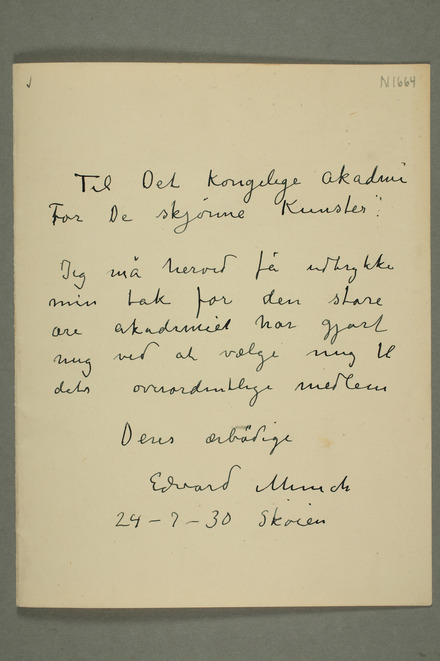 N1664
Til Det Kongelige Akadmi
For De skjønne Kunster".
Jeg må herved få udtrykke
min tak for den store
ære akademiet har gjort
meg ved at vælge meg til
dets overordentlige medlem
Deres ærbødige
Edvard Munch
24-7-30 Skøien